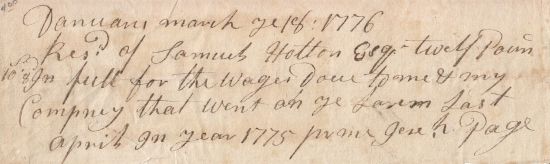 Danvars march ye 18: 1776
Resd of Samuel Holton Esqr twelf Poun
In full for the Wages Doue to me & my
Compney that went on ye Larem Last
april In year 1775 pr me Jereh Page